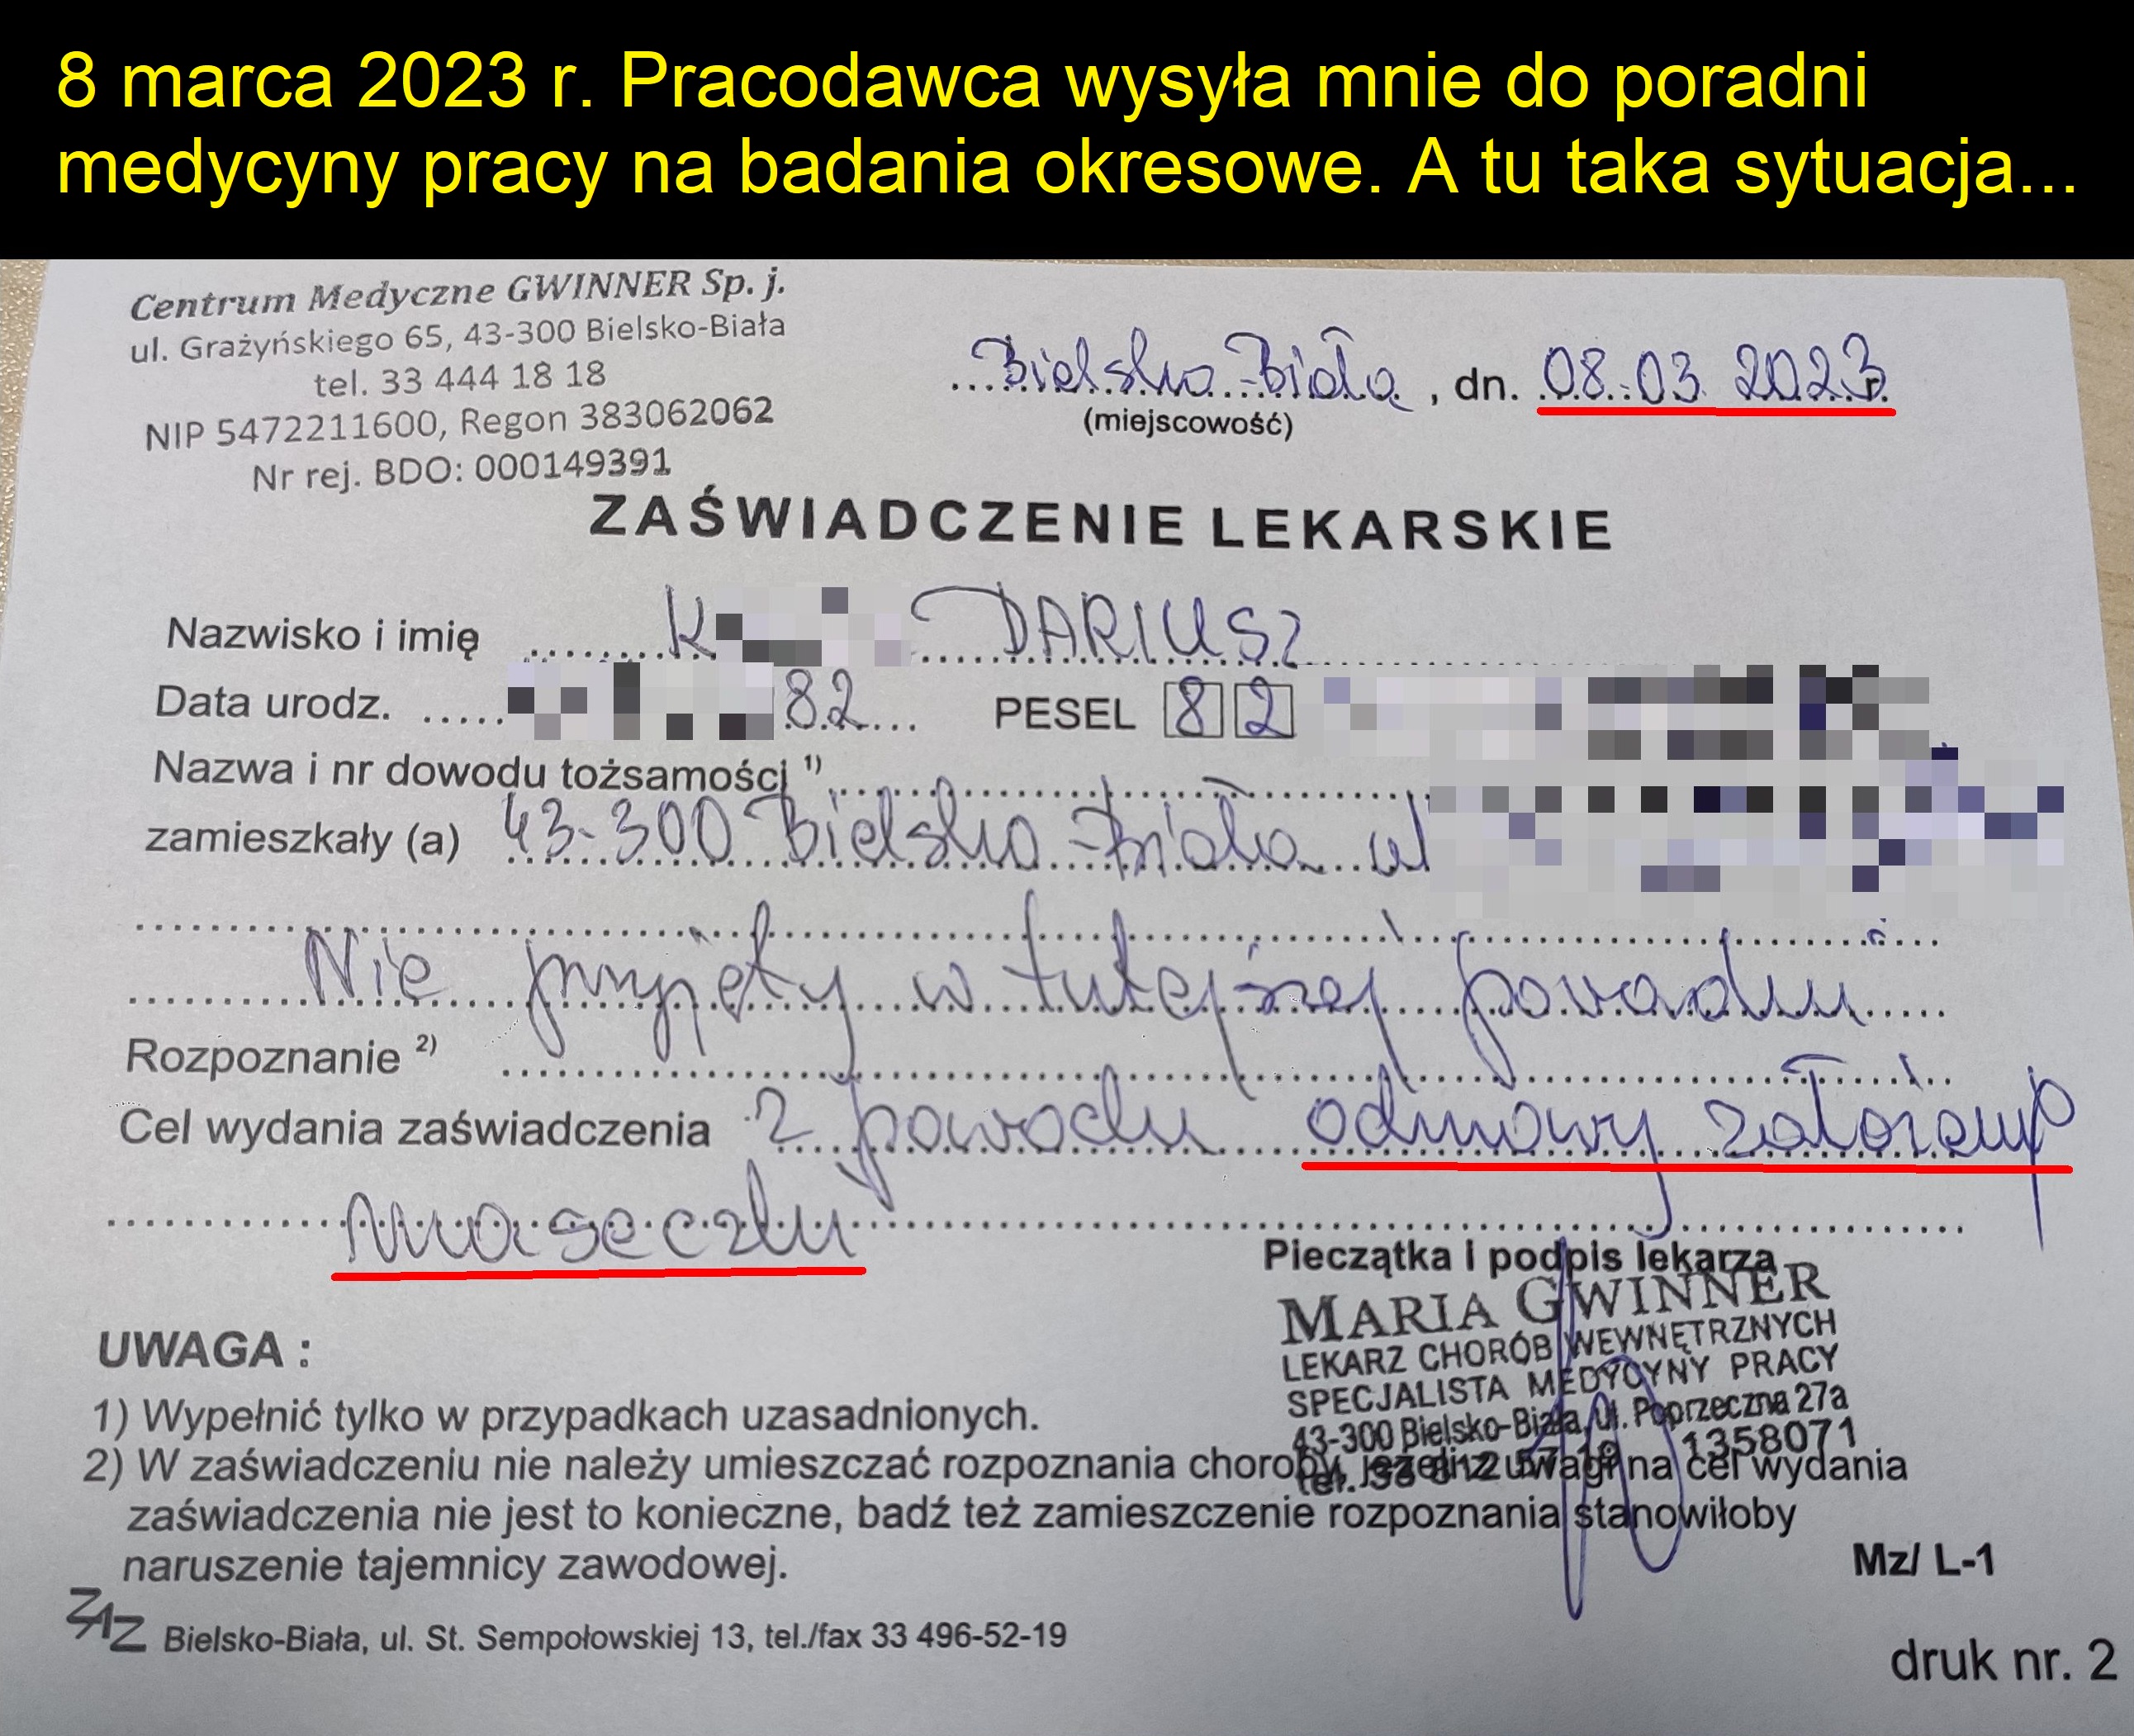 8 marca 2023 r. Pracodawca wysyła mnie do poradni
medycyny pracy na badania okresowe. A tu taka sytuacja...
Centrum Medyczne GWINNER Sp. j.
ul. Grażyńskiego 65, 43-300 Bielsko-Biała
tel. 33 444 18 18
NIP 5472211600, Regon 383062062
Nr rej. BDO: 000149391
Bielsko-Biała, dn. 08.03 2023 r.
(miejscowość)
ZAŚWIADCZENIE LEKARSKIE
Nazwisko i imię K DARIUSZ
Data urodz. 82 PESEL 82
Nazwa i nr dowodu tożsamości 1)
zamieszkały (a) 43-300 Bielsko-Biała ul
Nie przyjęty w tutejszej poradni
Rozpoznanie 2)
Cel wydania zaświadczenia z powodu odmowy założenia
maseczki
Pieczątka i podpis lekarza
MARIA GWINNER
LEKARZ CHORÓB WEWNĘTRZNYCH
SPECJALISTA MEDYCYNY PRACY
43-300 Bielsko-Biała, ul. Poprzeczna 27a
1358071
UWAGA :
1) Wypełnić tylko w przypadkach uzasadnionych.
2) W zaświadczeniu nie należy umieszczać rozpoznania choroby, jeżeli z uwagi na cel wydania
zaświadczenia nie jest to konieczne, badź też zamieszczenie rozpoznania stanowiłoby
naruszenie tajemnicy zawodowej.
Mz/ L-1
ZAZ Bielsko-Biała, ul. St. Sempołowskiej 13, tel./fax 33 496-52-19
druk nr. 2